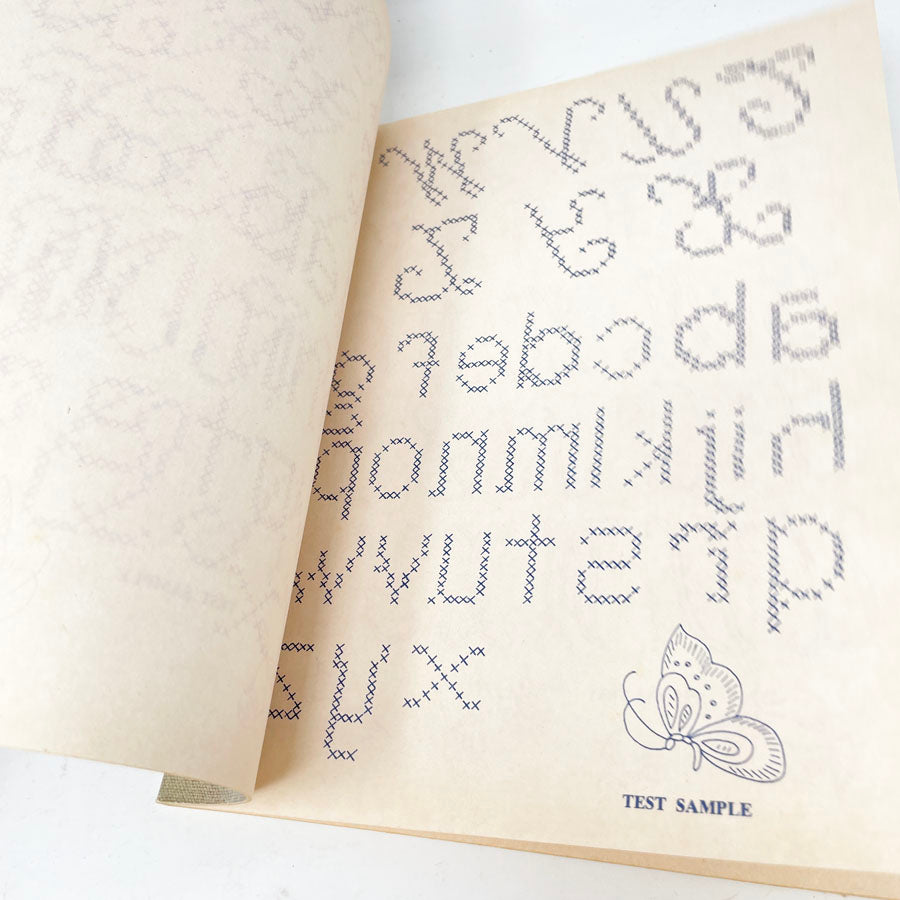 T U V W
X Y Z
a b c d e f g
h i j k l m n o p
q r s t u v w
x y z
TEST SAMPLE